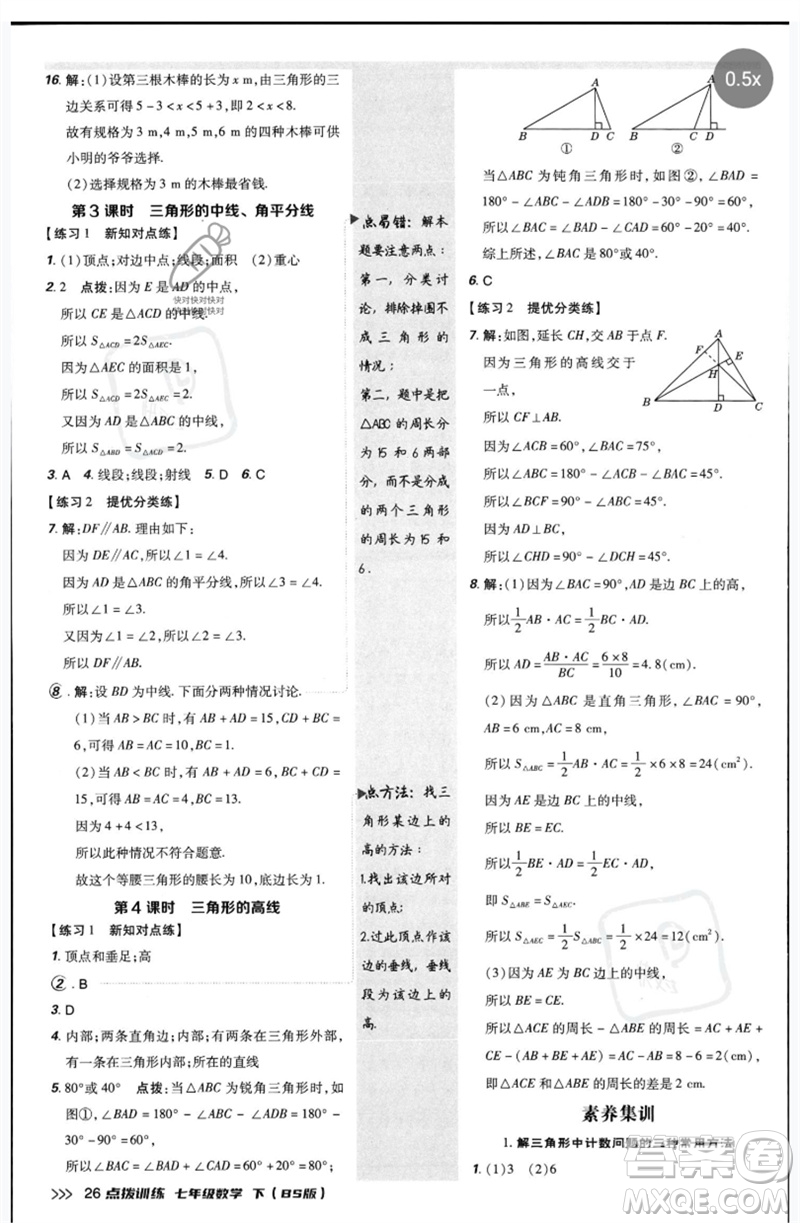 16. 解:(1)设第三根木棒的长为 x m,由三角形的三
边关系可得 5-3<x<5+3,即 2<x<8.
故有规格为 3 m,4 m,5 m,6 m 的四种木棒可供
小明的爷爷选择.
(2)选择规格为 3 m 的木棒最省钱.
第3课时 三角形的中线、角平分线
【练习1 新知对点练】
1. (1)顶点;对边中点;线段;面积 (2)重心
2. 2 点拨:因为 E 是 AD 的中点,
所以 CE 是△ACD 的中线.
所以 S△ACD=2S△AEC.
因为△AEC 的面积是 1,
所以 S△ACD=2S△AEC=2.
又因为 AD 是△ABC 的中线,
所以 S△ABD=S△ACD=2.
3. A 4. 线段;线段;射线 5. D 6. C
【练习2 提优分类练】
7. 解:DF∥AB. 理由如下:
因为 DE∥AC,所以∠1=∠2.
因为 AD 是△ABC 的角平分线,所以∠2=∠4.
所以∠1=∠4.
又因为∠1=∠3,所以∠3=∠4.
所以 DF∥AB.
8. 解:设 BD 为中线. 下面分两种情况讨论.
(1)当 AB>BC 时,有 AB+AD=15,CD+BC=
6,可得 AB=AC=10,BC=1.
(2)当 AB<BC 时,有 AB+AD=6,BC+CD=
15,可得 AB=AC=4,BC=13.
因为 4+4<13,
所以此种情况不符合题意.
故这个等腰三角形的腰长为 10,底边长为 1.
第4课时 三角形的高线
【练习1 新知对点练】
1. 顶点和垂足;高
2. B
3. D
4. 内部;两条直角边;内部;有两条在三角形外部,
有一条在三角形内部;所在的直线
5. 80°或 40° 点拨:当△ABC 为锐角三角形时,如
图①,∠BAD=180°-90°-30°=60°,
所以∠BAC=∠BAD+∠CAD=60°+20°=80°.
>>> 26 点拨训练 七年级数学 下(BS版)
点易错:解本
题要注意两点:
第一,分类讨
论,排除掉围不
成三角形的
情况;
第二,题中是将
△ABC 的周长分
为15 和 6 两部
分,而不是分成
的两个三角形
的周长为15 和
6.
点方法:找三
角形某边上的
高的方法:
1.找出该边所对
的顶点;
2.过此顶点作该
边的垂线,垂线
段为该边上的
高.
0.5x
A
B
D
C
①
A
B
C
D
②
当△ABC 为钝角三角形时,如图②,∠BAD=
180°-90°-30°=60°,
所以∠BAC=∠BAD-∠CAD=60°-20°=40°.
综上所述,∠BAC=80°或 40°.
6. C
【练习2 提优分类练】
7. 解:如图,延长 CH,交 AB 于点 F.
因为三角形的高线交于
一点,
所以 CF⊥AB.
A
F
E
H
B
D
C
因为∠ACB=60°,∠BAC=75°,
所以∠ABC=180°-∠BAC-∠ACB=45°.
所以∠BCF=90°-∠ABC=45°.
因为 AD⊥BC,
所以∠CHD=90°-∠BCF=45°.
8. 解:(1)因为∠BAC=90°,AD 是边 BC 上的高,
所以 1/2 AB·AC=1/2 BC·AD.
所以 AD=AB·AC/BC=6×8/10=4.8(cm).
(2)因为△ABC 是直角三角形,∠BAC=90°,
AB=6 cm,AC=8 cm,
所以 S△ABC=1/2 AB·AC=1/2×6×8=24(cm²).
因为 AE 是边 BC 上的中线,
所以 BE=EC.
所以 1/2 BE·AD=1/2 EC·AD,
即 S△ABE=S△AEC.
所以 S△AEC=1/2 S△ABC=1/2×24=12(cm²).
(3)因为 AE 为 BC 边上的中线,
所以 BE=CE.
所以△ACE 的周长-△ABE 的周长=AC+AE+
CE-(AB+BE+AE)=AC-AB=8-6=2(cm),
即△ACE 和△ABE 的周长的差是 2 cm.
素养集训
1. 解三角形中计数问题的三种常用方法
1. (1)3 (2)6
快对快对快对
快对快对快对
答案圈
MXQE.COM